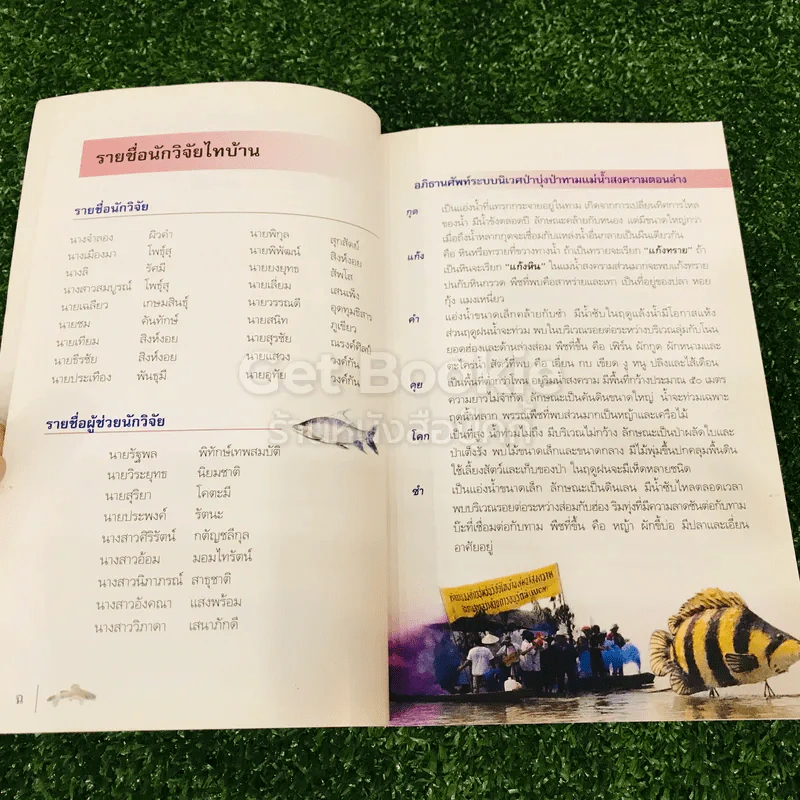 รายชื่อนักวิจัยไทบ้าน
รายชื่อนักวิจัย
นางจำลอง ผิวคำ
นางเมืองมา โพธุ์สุ
นางลิ รัศมี
นางสาวสมบูรณ์ โพธุ์สุ
นายเฉลียว เกษมสินธุ์
นายชม คันทักษ์
นายเทียม สิงห์งอย
นายธีรชัย สิงห์งอย
นายประเทือง พันธุมี
นายพิกุล สุกสัตย์
นายพิพัฒน์ สิงห์งอย
นายยงยุทธ สัพโส
นายเลี่ยม เสนเพ็ง
นายวรรณดี อุดทุมชิสาร
นายสนิท ภูเขียว
นายสุรชัย ณรงค์ศิลป์
นายแสวง วงค์กัน
นายอุทัย วงค์กัน
รายชื่อผู้ช่วยนักวิจัย
นายรัฐพล พิทักษ์เทพสมบัติ
นายวีระยุทธ นิยมชาติ
นายสุริยา โคตะมี
นายประพงค์ รัตนะ
นางสาวศิริรัตน์ กตัญชลีกุล
นางสาวอ้อม มอมไทรัตน์
นางสาวนิภาภรณ์ สาธุชาติ
นางสาวอังคณา แสงพร้อม
นางสาววิภาดา เสนาภักดี
ฌ
อภิธานศัพท์ระบบนิเวศป่าบุ่งป่าทามแม่น้ำสงครามตอนล่าง
กุด เป็นแอ่งน้ำที่แทรกกระจายอยู่ในทาม เกิดจากการเปลี่ยนทิศการไหล
ของน้ำ มีน้ำขังตลอดปี ลักษณะคล้ายกับหนอง แต่มีขนาดใหญ่กว่า
เมื่อถึงน้ำหลากกุดจะเชื่อมกับแหล่งน้ำอื่นกลายเป็นผืนเดียวกัน
แก้ง คือ หินหรือทรายที่ขวางทางน้ำ ถ้าเป็นทรายจะเรียก "แก้งทราย" ถ้า
เป็นหินจะเรียก "แก้งหิน" ในแม่น้ำสงครามส่วนมากจะพบแก้งทราย
ปนกับหินกรวด พืชที่พบคือสาหร่ายและเทา เป็นที่อยู่ของปลา หอย
กุ้ง แมงเหนี่ยว
คำ แอ่งน้ำขนาดเล็กคล้ายกับซำ มีน้ำซับในฤดูแล้งน้ำมีโอกาสแห้ง
ส่วนฤดูฝนน้ำจะท่วม พบในบริเวณรอยต่อระหว่างบริเวณลุ่มกับโนน
ยอดฮ่องและด้านล่างส้อม พืชที่ขึ้น คือ เฟิร์น ผักกูด ผักหนามและ
ตะไคร่น้ำ สัตว์ที่พบ คือ เอี่ยน กบ เขียด งู หนู ปลิงและไส้เดือน
คุย เป็นพื้นที่ต่ำกว่าโพน อยู่ริมน้ำสงคราม มีพื้นที่กว้างประมาณ ๕๐ เมตร
ความยาวไม่จำกัด ลักษณะเป็นคันดินขนาดใหญ่ น้ำจะท่วมเฉพาะ
ฤดูน้ำหลาก พรรณพืชที่พบส่วนมากเป็นหญ้าและเครือไม้
โคก เป็นที่สูง น้ำท่วมไม่ถึง มีบริเวณไม่กว้าง ลักษณะเป็นป่าผลัดใบและ
ป่าเต็งรัง พบไม้ขนาดเล็กและขนาดกลาง มีไม้พุ่มขึ้นปกคลุมพื้นดิน
ใช้เลี้ยงสัตว์และเก็บของป่า ในฤดูฝนจะมีเห็ดหลายชนิด
ซำ เป็นแอ่งน้ำขนาดเล็ก ลักษณะเป็นดินเลน มีน้ำซับไหลตลอดเวลา
พบบริเวณรอยต่อระหว่างส่อมกับฮ่อง ริมทุ่งที่มีความลาดชันต่อกับทาม
บ๊ะที่เชื่อมต่อกับทาม พืชที่ขึ้น คือ หญ้า ผักขี้บ่อ มีปลาและเอี่ยน
อาศัยอยู่
Get Bookie
ร้านหนังสือเก็ทบุ๊คกี้